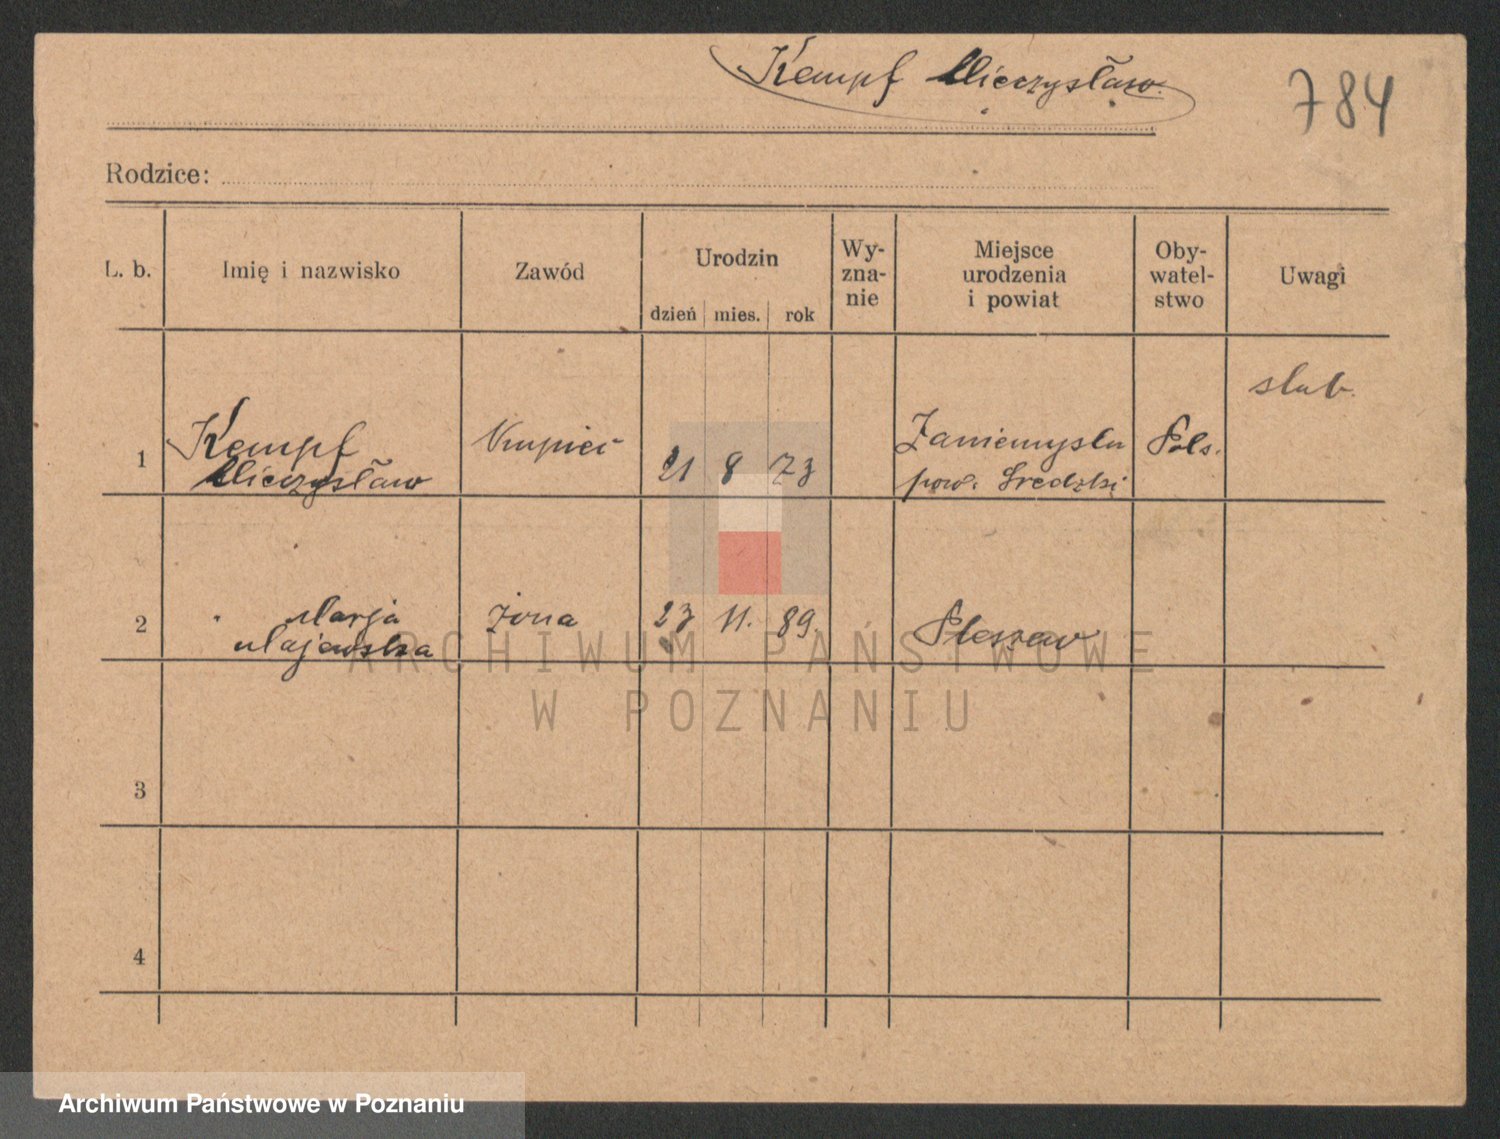 Kempf Mieczysław.
784
Rodzice:
L. b.
Imię i nazwisko
Zawód
Urodzin
dzień mies. rok
Wy-
zna-
nie
Miejsce
urodzenia
i powiat
Oby-
watel-
stwo
Uwagi
ślub.
1
Kempf
Mieczysław
Kupiec
21 8 73
Zaniemyślu
pow. Średzki
Pols.
2
Marja
Majewska
żona
23 11. 89.
Pleszew
3
4
ARCHIWUM PAŃSTWOWE
W POZNANIU
Archiwum Państwowe w Poznaniu